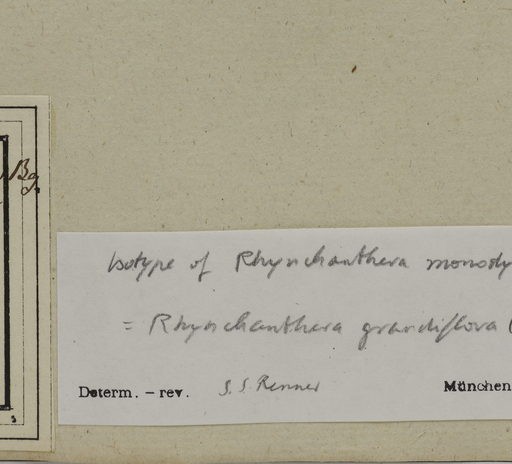 Bg.
Isotype of Rhynchanthera monody
= Rhynchanthera grandiflora (
Determ. – rev. S.S. Renner München